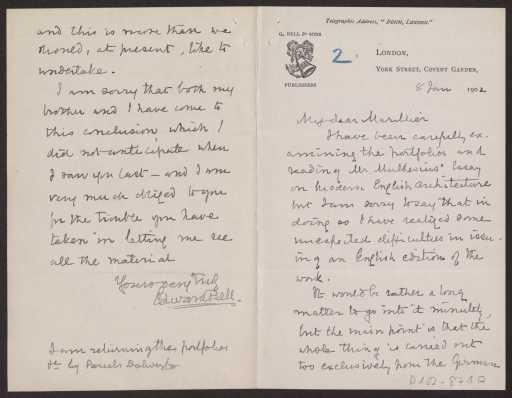 Telegraphic Address, "BOHN, LONDON."
G. BELL & SONS
PUBLISHERS
2.
LONDON,
YORK STREET, COVENT GARDEN,
8 Jan 1902
My dear Marillier
I have been carefully ex-
amining the portfolios and
reading Mr Muthesius' Essay
on Modern English Architecture
but I am sorry to say that in
doing so I have realized some
unexpected difficulties in issu-
ing an English edition of the
work.
It would be rather a long
matter to go into it minutely,
but the main point is that the
whole thing is carried out
too exclusively from the German
and this is more than we
should, at present, like to
undertake.
I am sorry that both my
brother and I have come to
this conclusion which I
did not anticipate when
I saw you last - and I am
very much obliged to you
for the trouble you have
taken in letting me see
all the material
Yours very truly
Edward Bell.
I am returning the portfolios
by Parcels Delivery